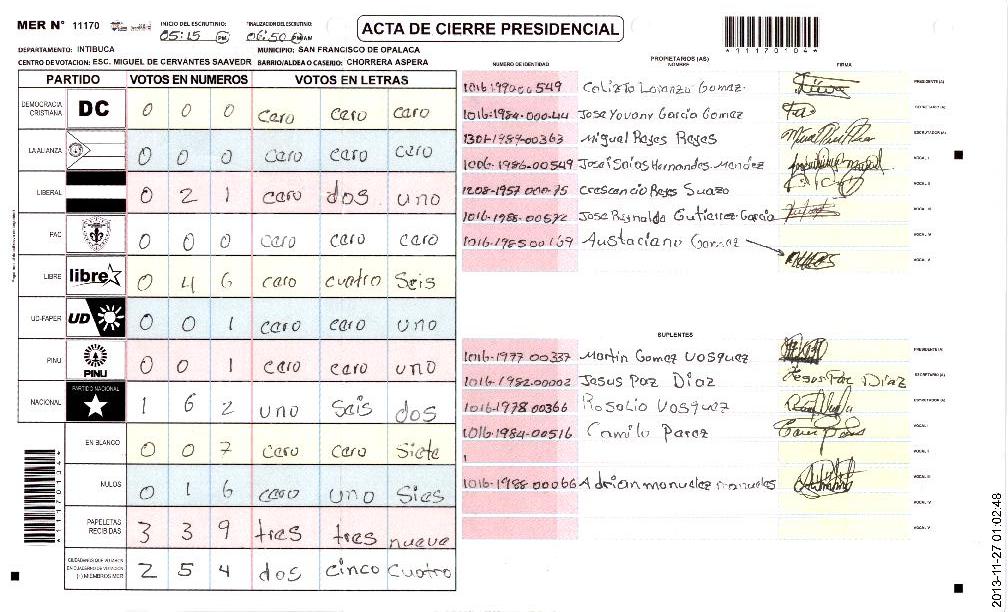 MER N° 11170 INICIO DEL ESCRUTINIO: 05:15 PM FINALIZACION DEL ESCRUTINIO: 06:50 PM AM ACTA DE CIERRE PRESIDENCIAL
*111170104*
DEPARTAMENTO: INTIBUCA MUNICIPIO: SAN FRANCISCO DE OPALACA
CENTRO DE VOTACION: ESC. MIGUEL DE CERVANTES SAAVEDR BARRIO/ALDEA O CASERIO: CHORRERA ASPERA
PARTIDO VOTOS EN NUMEROS VOTOS EN LETRAS
DEMOCRACIA CRISTIANA DC 0 0 0 caro caro caro
LA ALIANZA 0 0 0 caro caro caro
LIBERAL 0 2 1 caro dos uno
PAC 0 0 0 caro caro caro
LIBRE libre 0 4 6 caro cuatro Seis
UD-FAPER UD 0 0 1 caro caro uno
PINU PINU 0 0 1 caro caro uno
NACIONAL PARTIDO NACIONAL 1 6 2 uno Seis dos
EN BLANCO 0 0 7 caro caro Siete
NULOS 0 1 6 caro uno Sies
PAPELETAS RECIBIDAS 3 3 9 tres tres nueve
CIUDADANOS QUE VOTARON EN CUADERNO DE VOTACION (+) MIEMBROS MER 2 5 4 dos cinco cuatro
*111170104*
PROPIETARIOS (AS)
NUMERO DE IDENTIDAD NOMBRE FIRMA
Calixto Loranzo Gomez PRESIDENTE (A)
1016-1984-000-44 Jose Yovany Garcia Gomez SECRETARIO (A)
1301-1987-00363 Miguel Reyes Reyes ESCRUTADOR (A)
1006-1986-00549 Jose Isaias Hernandes Mendez VOCAL I
1208-1957-000-75 Crescencio Reyes Suazo VOCAL II
1016-1988-00572 Jose Reynaldo Gutierrez Garcia VOCAL III
1016-1985 00169 Austaciano Gomez VOCAL IV
VOCAL V
SUPLENTES
1016-1977-00337 Martin Gomez Vosquez PRESIDENTE (A)
1016-1982-00002 Jesus Paz Diaz Jesus Paz Diaz SECRETARIO (A)
1016-1978 00366 Rosalio Vosquez ESCRUTADOR (A)
1016-1984-00516 Camilo Parez VOCAL I
1 VOCAL II
1016-1988-00066 Adrian manuelez manueles VOCAL III
VOCAL IV
VOCAL V
2013-11-27 01:02:48